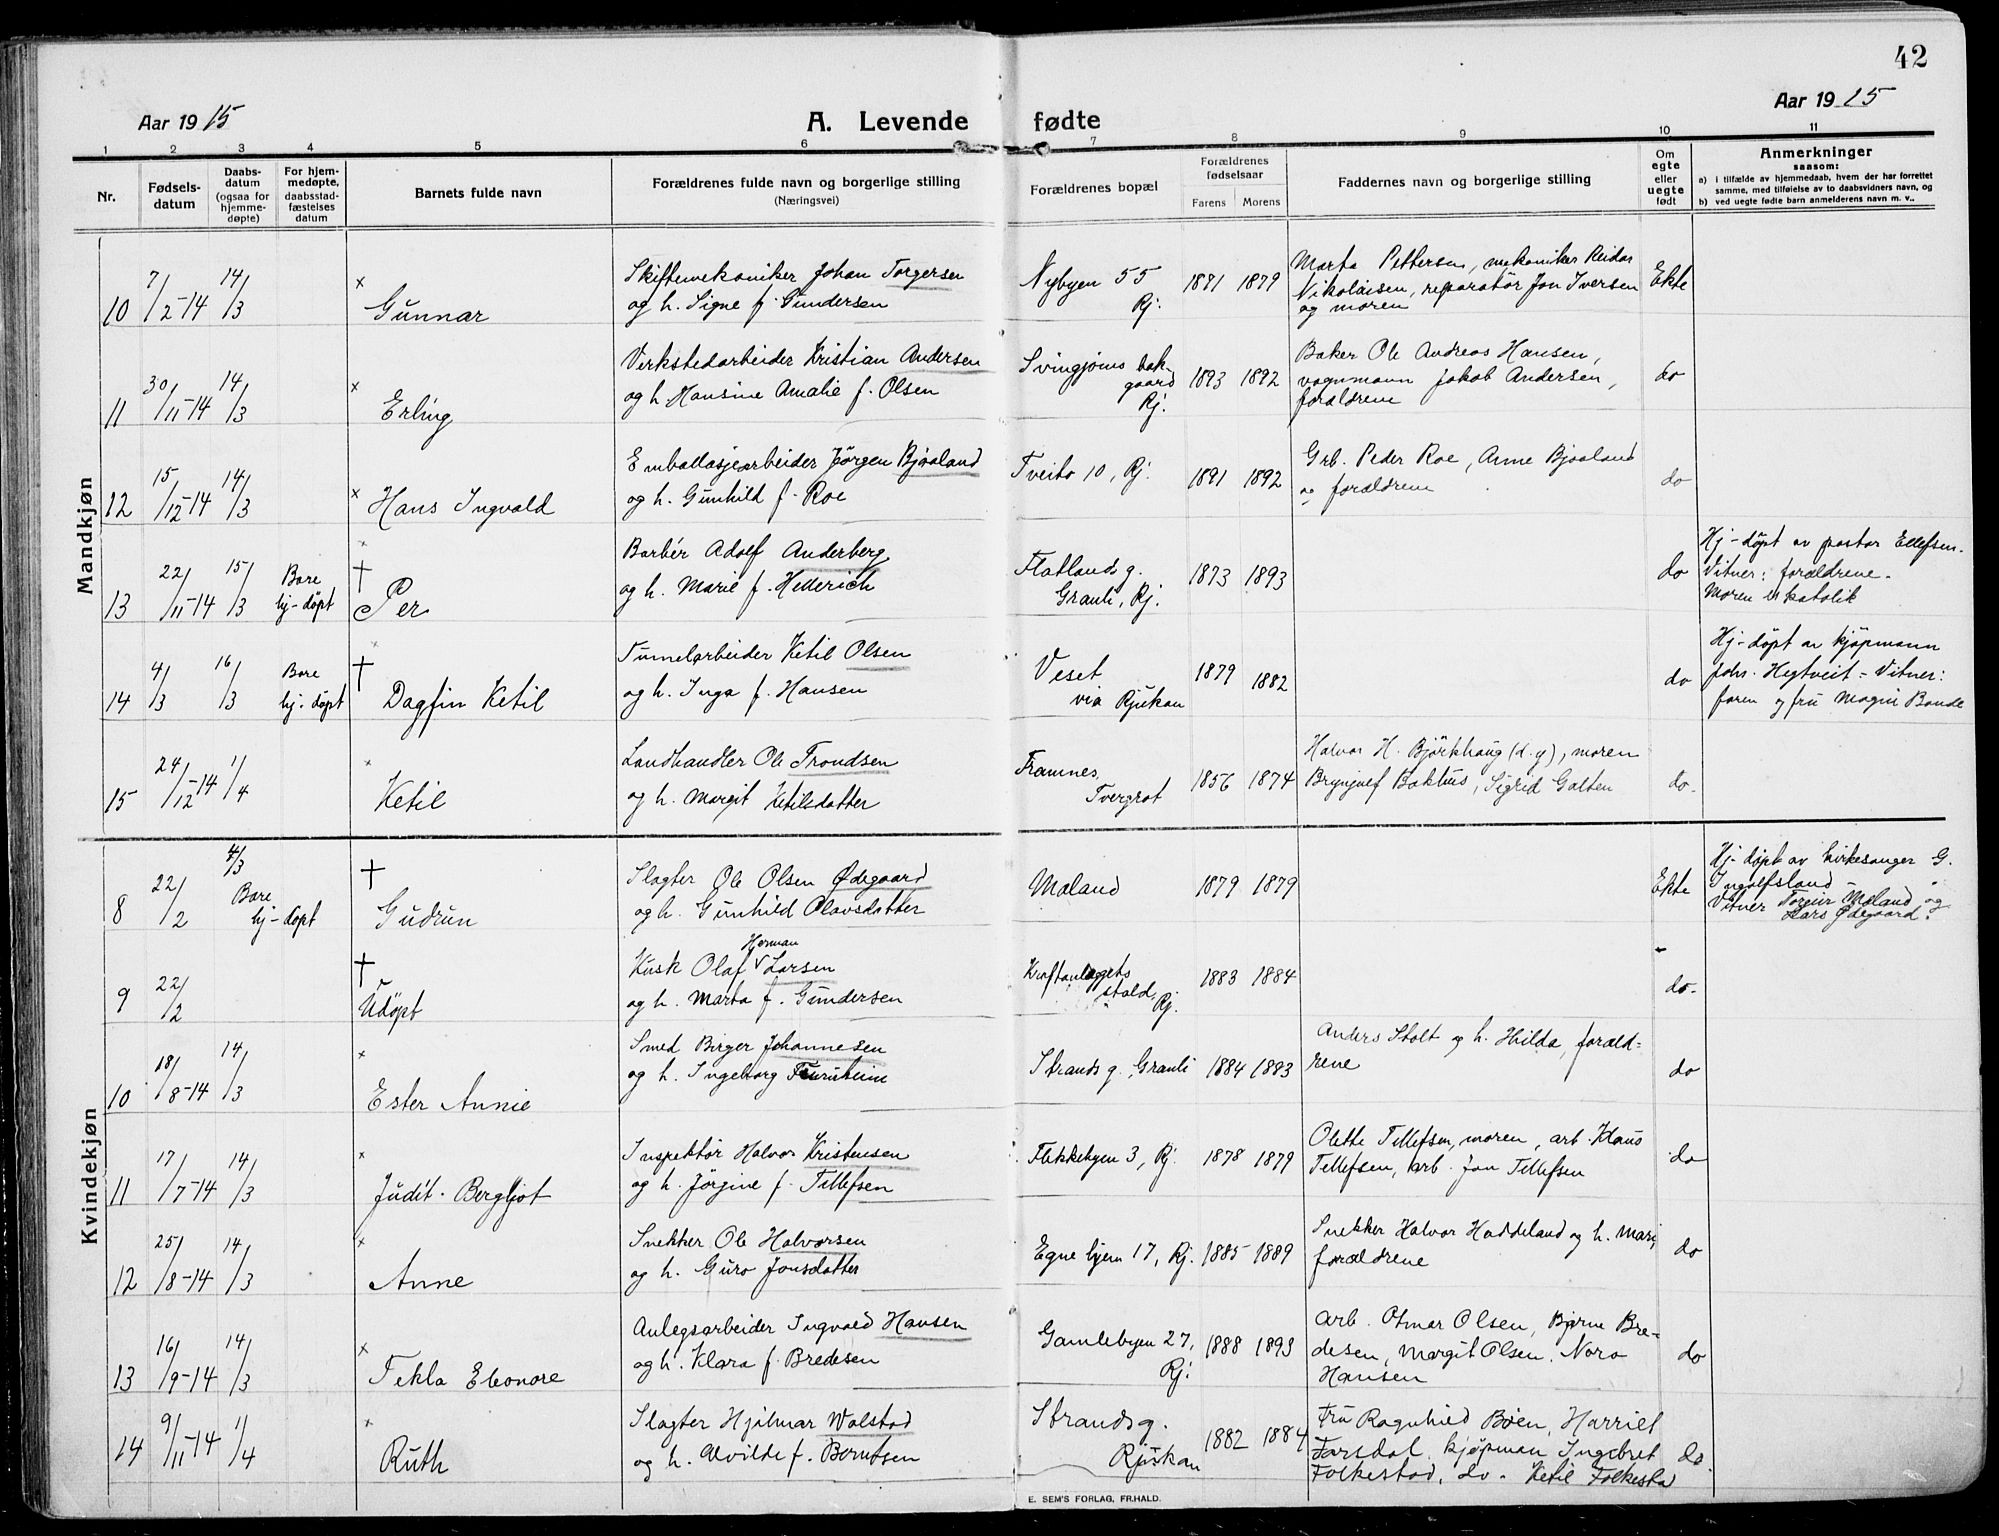 42
Aar 1915
A. Levende fødte
Aar 1915
1 2 3 4 5 6 7 8 9 10 11
Nr.
Fødsels-
datum
Daabs-
datum
(ogsaa for
hjemme-
døpte)
For hjem-
medøpte,
daabsstad-
fæstelses
datum
Barnets fulde navn
Forældrenes fulde navn og borgerlige stilling
(Næringsvei)
Forældrenes bopæl
Forældrenes
fødselsaar
Farens Morens
Faddernes navn og borgerlige stilling
Om
egte
eller
uegte
født
Anmerkninger
saasom:
a) i tilfælde av hjemmedaab, hvem der har forrettet
samme, med tilføielse av to daabsvidners navn, og
b) ved uegte fødte barn anmelderens navn m. v..
Mandkjøn
10 7/2-14 14/3 × Gunnar
Skiftemekaniker Johan Torgersen
og h. Signe f. Gundersen
Nybyen 55
Rj.
1881 1879
Marta Pettersen, mekaniker Reidar
Nikolaisen, reparatör Jon Iversen
og moren
Ekte
11 30/11-14 14/3 × Erling
Verkstedarbeider Kristian Andersen
og h. Hansine Amalie f. Olsen
Svingjoms bak-
gaard
Rj.
1893 1892
Baker Ole Andreas Hansen,
vognmann Jakob Andersen,
forældrene
do
12 15/12-14 14/3 × Hans Ingvald
Emballasjearbeider Jörgen Bjaaland
og h. Gunhild f. Roe
Tveito 10, Rj.
1891 1892
Grb. Peder Roe, Anne Bjaaland
og forældrene
do
13 22/11-14 15/3 Bare
hj-döpt
× † Per
Barbér Adolf Anderberg
og h. Marie f. Hellerich
Flatlands g.
Grauli, Rj.
1873 1893
do
Hj-döpt av pastor Ellefsen.
Vitner: forældrene.
Moren er katolik
14 4/3 16/3 Bare
hj. döpt
× † Dagfin Ketil
Tunnelarbeider Ketil Olsen
og h. Inga f. Hansen
Veset
via Rjukan
1879 1882
do
Hj-döpt av kjöpmann
Johs. Hegtveit - Vitner:
faren og fru Magni Bonde
15 24/12-14 1/4 × Ketil
Landhandler Ole Trondsen
og h. Margit Ketilsdatter
Framnes,
Tvergrot
1856 1874
Halvor H. Björkhaug (d. y), moren
Brynjulf Bakhus, Sigrid Galten
do.
Kvindekjøn
8 22/2 4/3
Bare
hj-döpt
† Gudrun
Slagter Ole Olsen Ødegaard
og h. Gunhild Olavsdatter
Mæland
1879 1879
Ekte
Hj-döpt av kirkesanger G.
Ingolfsland -
Vitner Torgeir Mæland og
Lars Ødegaard.
9 22/2 † Udöpt
Kusk Olaf Herman Larsen
og h. Marta f. Gundersen
Kraftanlæggets
stald, Rj.
1883 1884
do.
10 18/8-14 14/3 × Ester Annie
Smed Birger Johannesen
og h. Ingeborg Furuheim
Strands g., Grauli
1884 1883
Anders Stolt og h. Hilda, foræld=
rene
do
11 17/7-14 14/3 × Judit. Bergljot
Inspektör Halvor Kristensen
og h. Jörgine f. Tillefsen
Flekkebyen 3, Rj.
1878 1879
Olette Tillefsen, moren, arb. Klaus
Tillefsen, arb. Jon Tillefsen
do
12 25/8-14 14/3 × Anne
Snekker Ole Halvorsen
og h. Guro Jonsdatter
Egne hjem 17, Rj.
1885 1889
Snekker Halvor Haddeland og h. Mari,
forældrene
do
13 16/9-14 14/3 × Tekla Eleonore
Anlegsarbeider Ingvald Hansen
og h. Klara f. Bredesen
Gamlebyen 27,
Rj.
1888 1893
Arb. Otmar Olsen, Bjarne Bre=
desen, Margit Olsen. Nora
Hansen
do
14 9/11-14 1/4 × Ruth
Slagter Hjalmar Walstad
og h. Alvilde f. Berntsen
Strands g.
Rjukan
1882 1884
Fru Ragnhild Böen, Harriet
Farsdal, kjøpman Ingebret
Folkestad, do. Ketil Folkesta
do.
E. SEM'S FORLAG, FR.HALD.